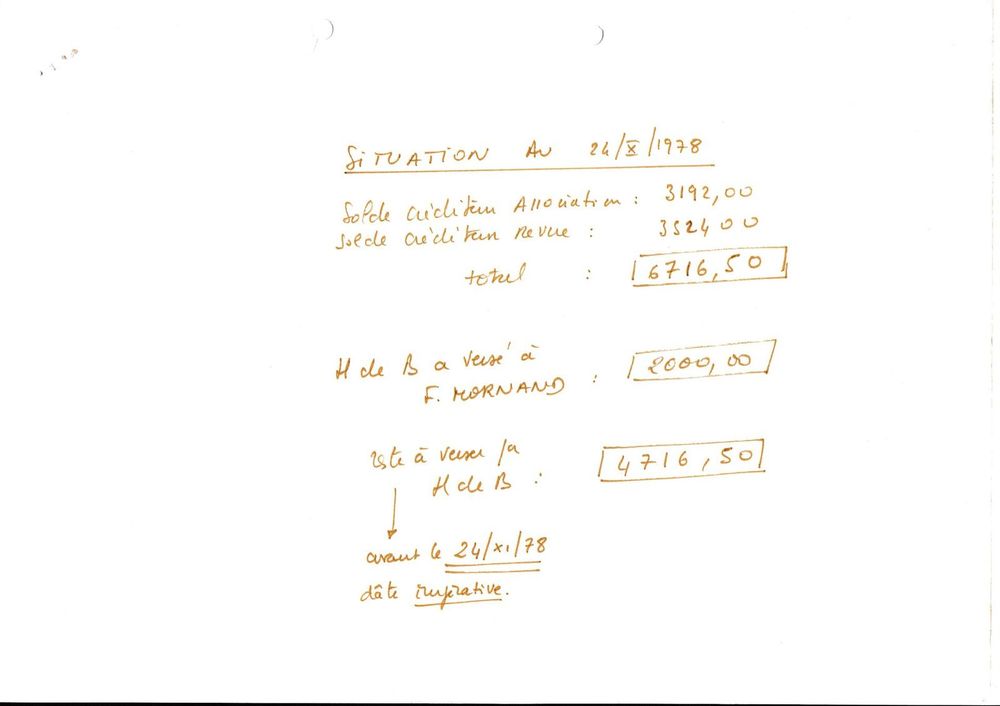 SITUATION AU 24/X/1978
Solde créditeur Association : 3192,00
Solde créditeur Revue : 3524 00
total : 6716,50
H de B a versé à
F. MORNAND : 2000,00
reste à verser
H de B : 4716,50
avant le 24/XI/78
dâte impérative.